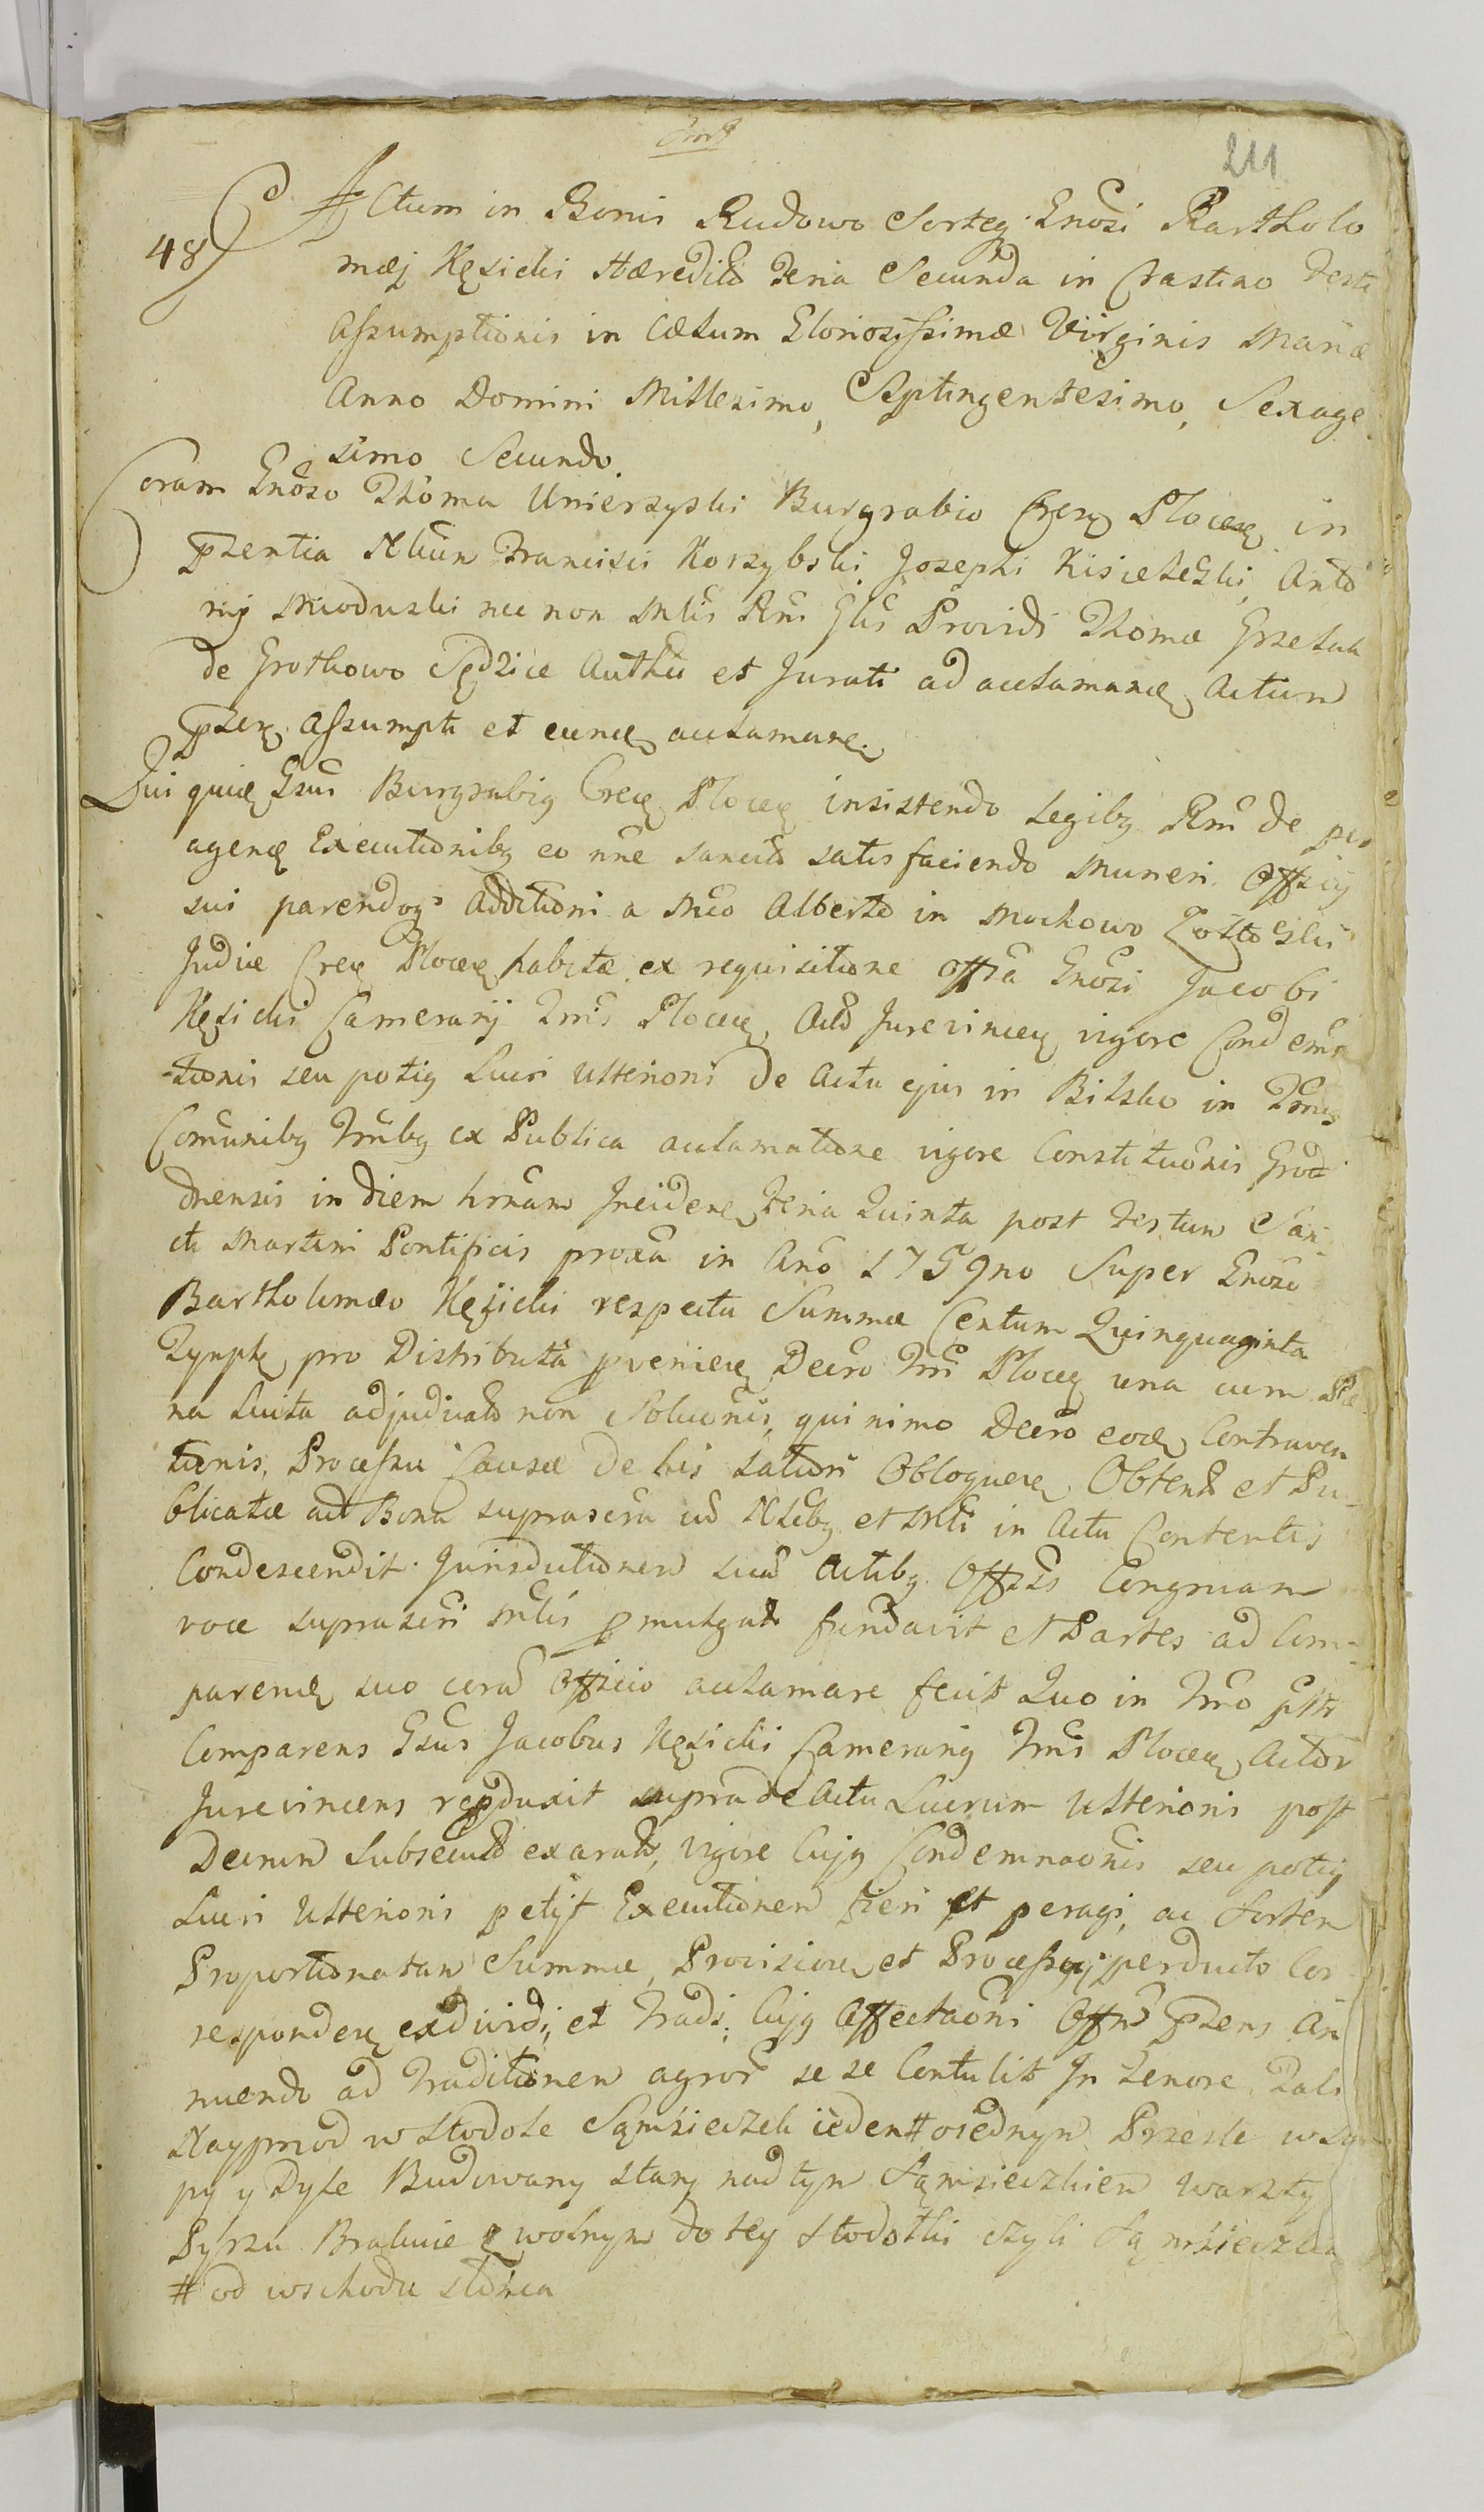 211
48
Actum in Bonis Rudowo Sorteq; Gnosi Bartholo
mæj Kęsicki Hæredit Feria Secunda in Crastino Festi
Assumptionis in Cœlum Gloriosissimæ Virginis Mariæ
Anno Domini Millesimo, Septingentesimo, Sexage
simo Secundo.
Coram Gnoso Thoma Unierzyski Burgrabio Cren Plocen in
pzentia Nlium Francisci Korzybski, Josephi Kisieleski, Anto
nij Mioduski nec non Mlis Rni Glis Providi Thomæ Grzelak
de Grotkowo Sędzice Authci et Jurati ad acclamand Actum
pzen assumpti et eund acclamare.
Qui quid Gsus Burgrabig Cren Plocen insistendo Legibg Rni de per
agend Executionibg eo nne sancit satisfaciendo Muneri Officij
sui parendoq Additioni a Mco Alberto in Mochowo
Judice Cren Plocen habitæ ex requisitione offsa Gnosi Jacobi
Kęsicki Camerarij Tnis Plocen, Act Jurevincen vigore Condemna
tionis seu potig Lucri Ulterioris de Actu ejus in Bilsko in Tnis
Comunibg Tnibg ex Publica acclamatione vigore Constitucionis Grod
dnensis in diem hrnam Inciden Feria Quinta post Festum San
cti Martini Pontificis proxa in Ano 1759no Super Gnoso
Bartholomæo Kęsicki respectu Summæ Centum Quinquaginta
Tynph pro Distributa pvenien Decro Tni Plocen una cum Pæ
na Luita adjudicat non Solucionis, quinimo Decro eod Contraven
tionis, Processu Causæ de his latiori Obloquen Obtent et Pu
blicatæ ad Bona suprascra cu Nlibg et Mli in Actu Contentis
Condescendit Jurisdictionem suam Actibg Offsis Congruam
voce suprascri Mlis pmulgat fundavit et Partes ad Com
parend suo coram Officio acclamare fecit Quo in Tno pntr
Comparens Gsus Jacobus Kęsicki Camerarig Tnis Plocen Actor
Jurevincens repduxit supra de Actu Lucrum Ulterioris post
Decrum Subsecut exarat, vigore Cujg Condemnaonis seu potig
Lucri Ulterioris petijt Executionem fieri et peragi, ac Sortem
Proportionatam Summæ, Provision et Processuj perducto Cor
responden exdividi, et Tradi, Cujg Affectaoni Offm pzens An
nuendo ad Traditionem agror sese Contulit In Tenore Tali
Nayprzod w Stodole Sąmsieczek ieden # oiednym Przesle w Sł
py y Dyle Budowany stary nad tym Sąmsieczkiem warzty
Pyrzu Brakuie z wolnym do tey Stodołki czyli Sąmsieczka
# od wschodu słońca